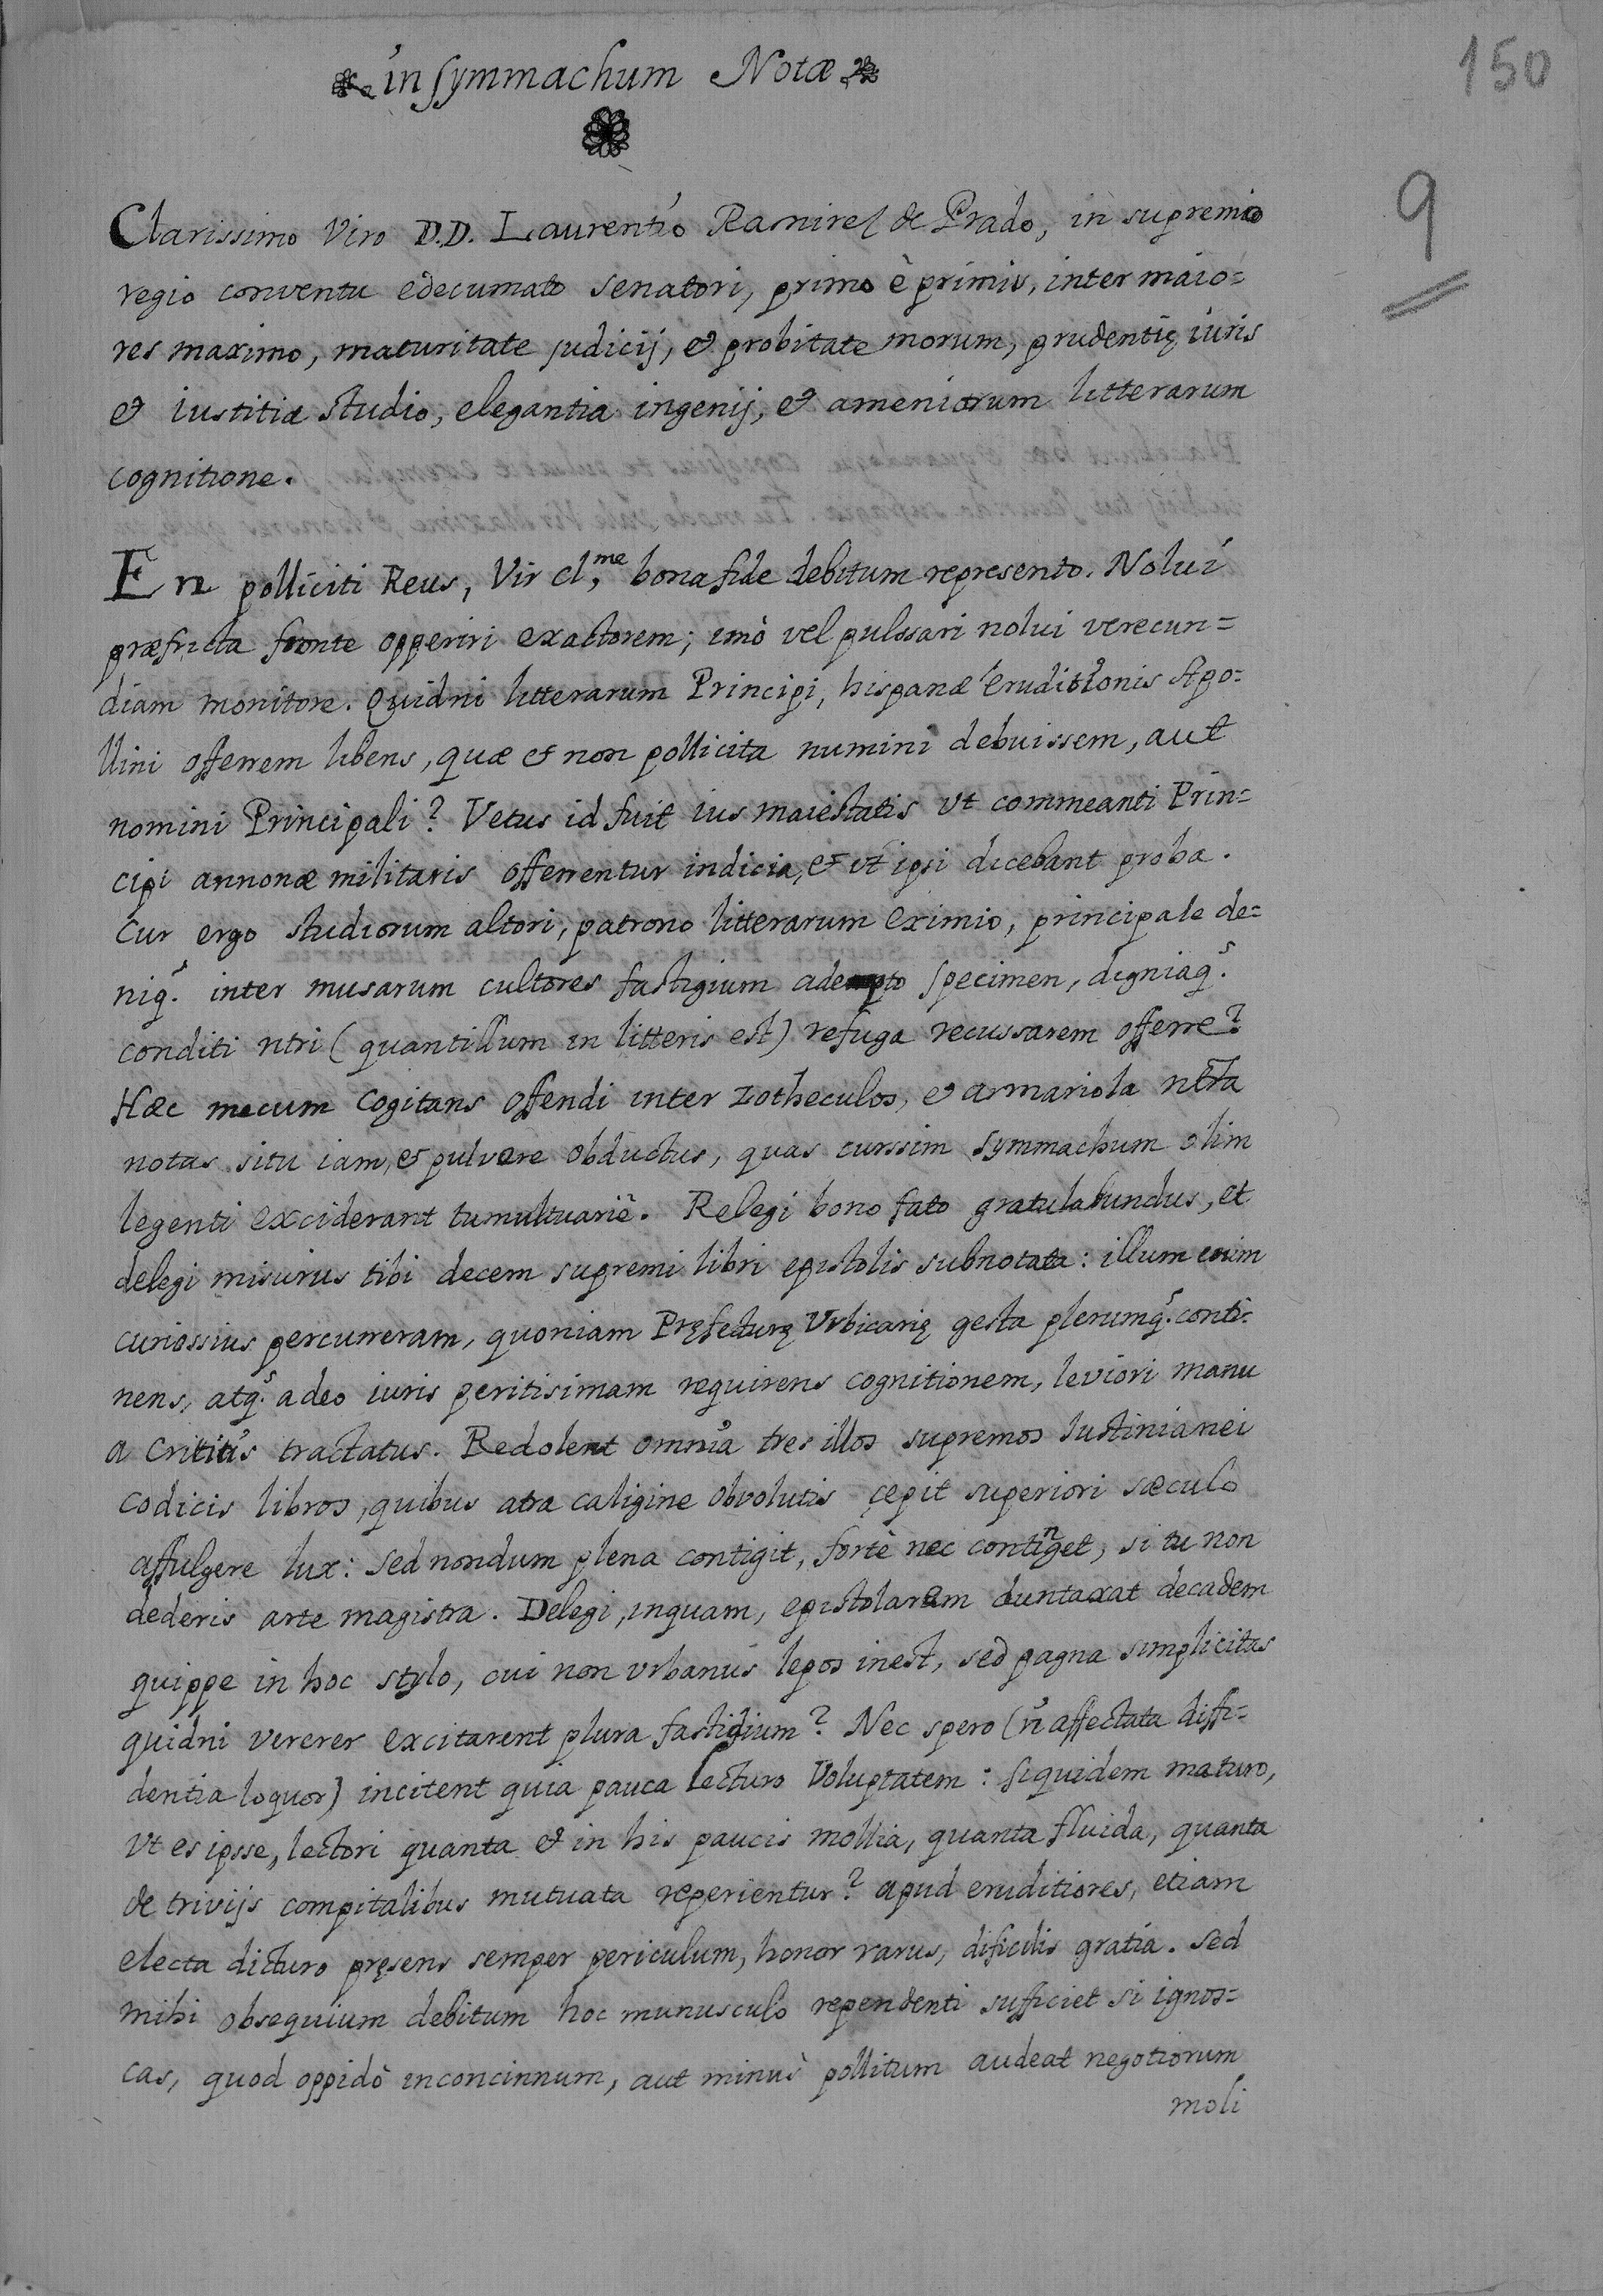 150
in symmachum Notæ
9
Clarissimo Viro D.D. Laurentio Ramirez de Prado, in supremo
regio conventu edecumato senatori, primo è primis, inter maio=
res maximo, maturitate judicij, & probitate morum, prudentię iuris
& iustitiæ studio, elegantia ingenij, & ameniorum litterarum
cognitione.
En polliciti Reus, Vir cl,me bona fide debitum represento. Nolui
præfricta fronte opperiri exactorem; imò vel pulssari nolui verecun=
diam monitore. Quidni litterarum Principi, hispanæ eruditionis Apo=
llini offerrem libens, quæ et non pollicita numini debuissem, aut
nomini Principali? Vetus id fuit ius maiestatis vt commeanti Prin=
cipi annonæ militaris offerrentur indicia, et vt ipsi dicebant proba.
Cur ergo studiorum altori, patrono litterarum eximio, principale de=
niq. inter musarum cultores fastigium adempto specimen, digniaq.
conditi ntri (quantillum in litteris est) refuga recussarem offerre?
Hæc mecum cogitans offendi inter zotheculos, & armariola ntra
notas situ iam, & pulvere obductus, quas curssim symmachum olim
legenti exciderant tumultuariè. Relegi bono fato gratulabundus, et
delegi misurus tibi decem supremi libri epistolis subnotata: illum enim
curiossius percurreram, quoniam Pręfecturę Vrbicarię gesta plerumq. conti=
nens, atq. adeo iuris peritisimam requirens cognitionem, leviori manu
a Crititis tractatus. Redolent omnia tres illos supremos Iustinianei
codicis libros, quibus atra caligine obvolutis çepit superiori sæculo
affulgere lux: sed nondum plena contigit, fortè nec continget, si tu non
dederis arte magistra. Delegi, inquam, epistolarum duntaxat decadem
quippe in hoc stylo, cui non vrbanus lepos inest, sed pagna simplicitas
quidni vererer excitarent plura fastidium? Nec spero (ñ affectata diffi=
dentia loquor) incitent quia pauca lecturo Voluptatem: siquidem maturo,
vt es ipsse, lectori quanta & in his paucis mollia, quanta fluida, quanta
de trivijs compitalibus mutuata reperientur? apud eruditiores, etiam
electa dicturo pręsens semper periculum, honor rarus, dificilis gratia. Sed
mihi obsequium debitum hoc munusculo rependenti sufficiet si ignos=
cas, quod oppidò inconcinnum, aut minus pollitum audeat negotiorum
moli